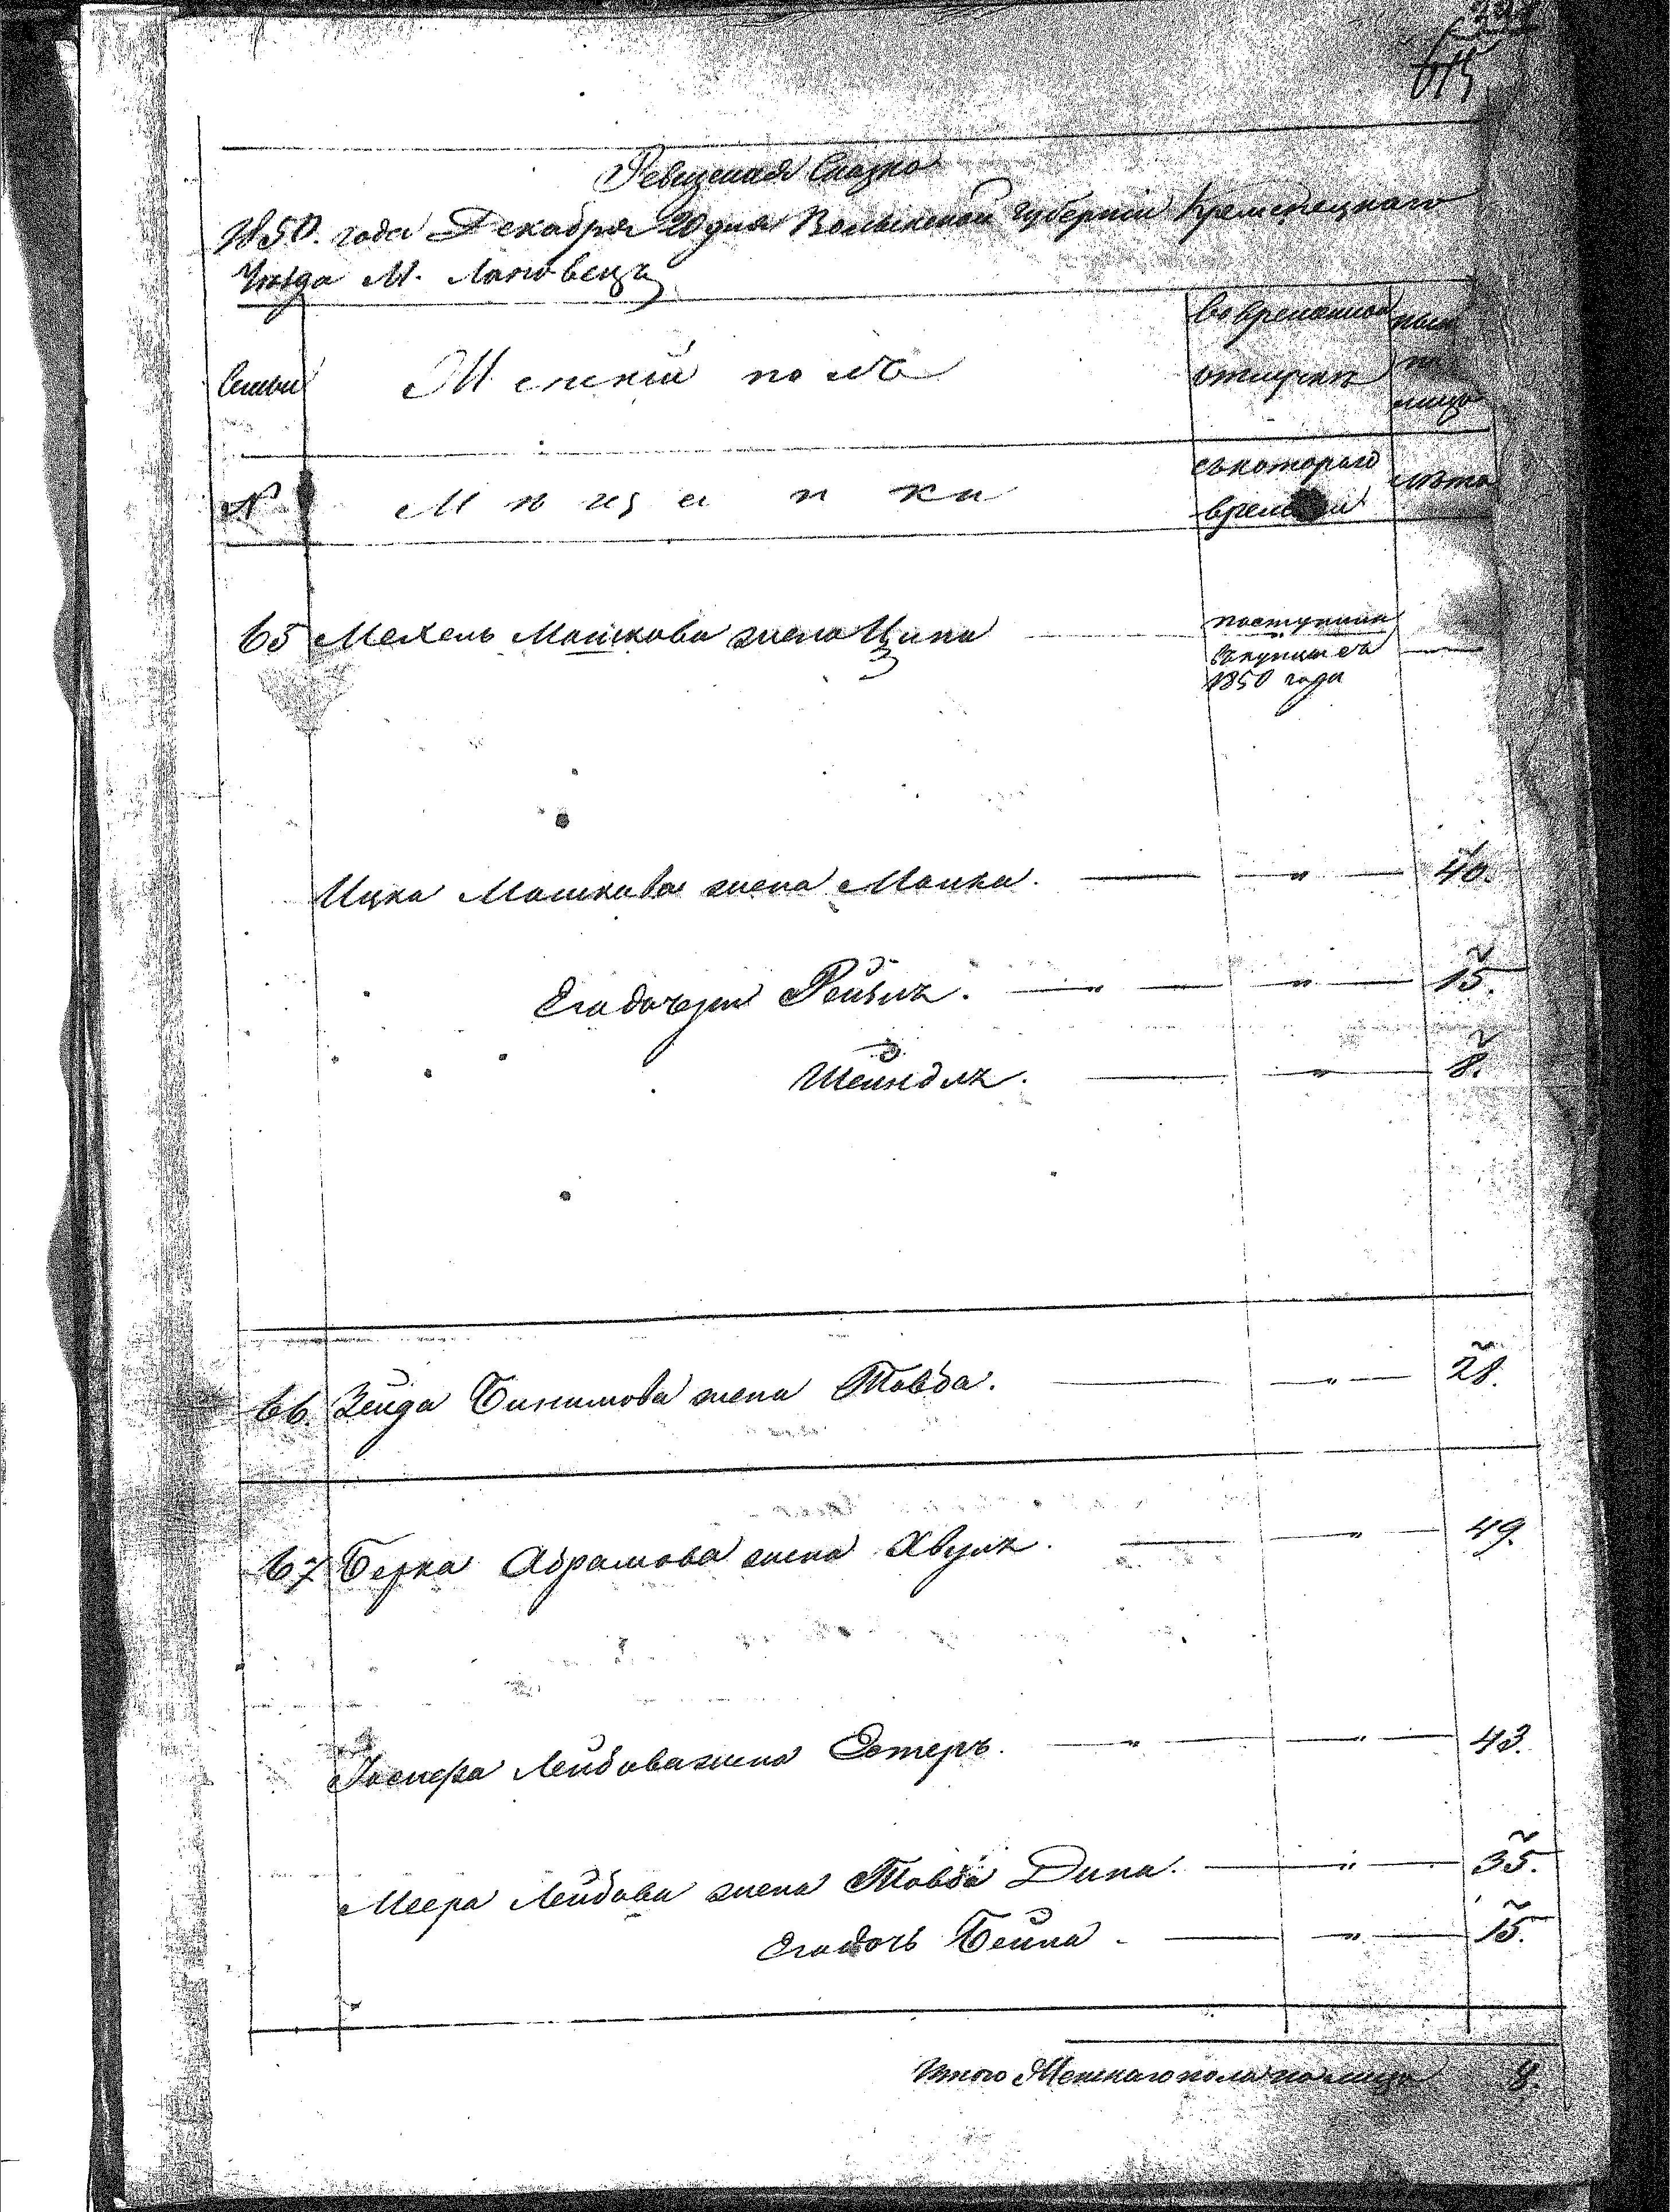 Ревизская Сказка
1850. года Декабря 20 дня Волынской губернии Кременецкаго
Уѣзда М. Лановецъ
Семьи
Женскій полъ
во временной отлучкѣ
ныне на лицо
№
Мѣщанки
съ котораго времени
лѣта
65 Мехель Машкова жена Ципа
поступила
въ купцы съ
1850 года
Ицка Машкова жена Малка. — „ — 40.
Его дочери Рейзя. — „ — „ — 15.
Шейндля. — „ — 8.
66. Зейда Бинимова жена Товба. — „ — 28.
67 Берка Абрамова жена Хвуля. — „ — 49.
Іосифа Лейбова жена Эстеръ. — „ — „ — 43.
Меера Лейбова жена Товба Дина. — „ — 35.
Его дочь Бейла. — „ — 15.
Итого Женскаго пола на лицо 8.